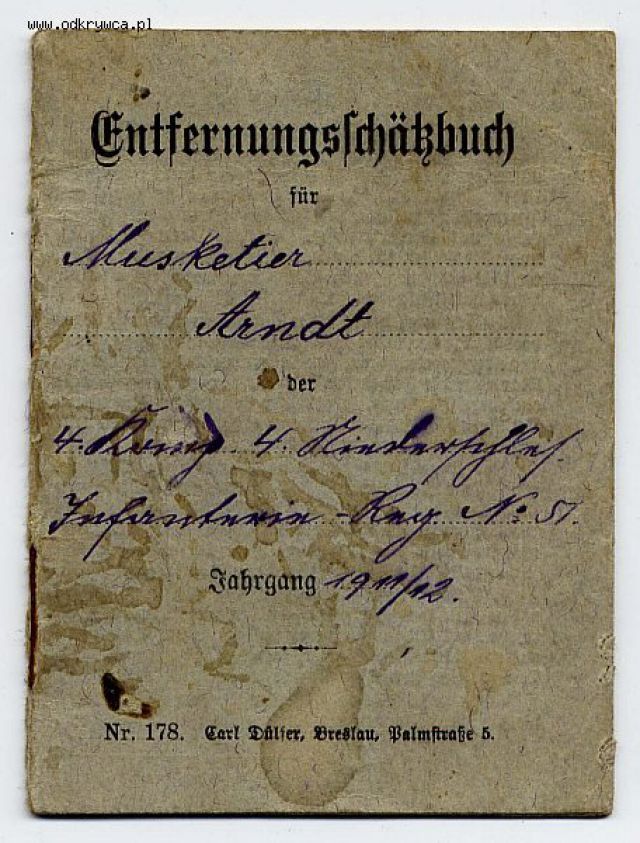 www.odkrywca.pl
Entfernungsschätzbuch
für
Musketier
Arndt
der
4. Komp. 4. Niederschles.
Infanterie-Reg. No. 51.
Jahrgang 1911/12.
Nr. 178. Carl Dülfer, Breslau, Palmstraße 5.